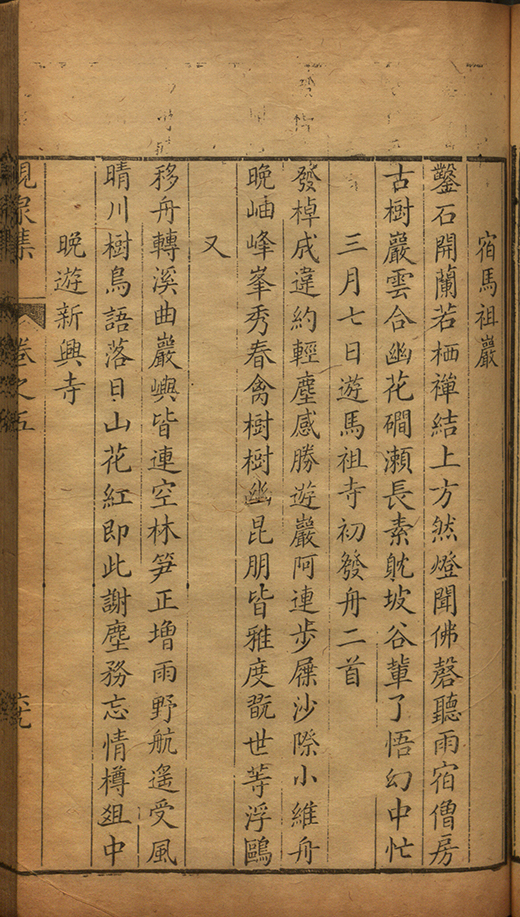 宿馬祖巖
鑿石開蘭若栖禪結上方然燈聞佛磬聽雨宿僧房
古樹巖雲合幽花磵瀬長素躭坡谷輩了悟幻中忙
三月七日遊馬祖寺初發舟二首
發棹成違約輕塵感勝遊巖阿連步屧沙際小維舟
晚岫峰峯秀春禽樹樹幽昆朋皆雅度翫世等浮鷗
又
移舟轉溪曲巖嶼皆連空林笋正增雨野航遥受風
晴川樹鳥語落日山花紅即此謝塵務忘情樽爼中
晚遊新興寺
集
卷之五